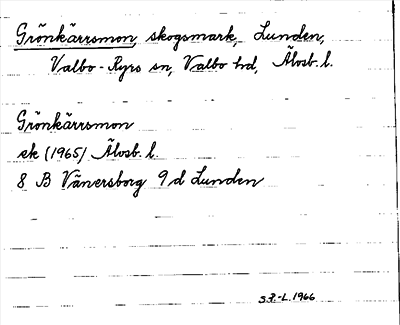 Grönkärrsmon, skogsmark, Lunden,
Valbo-Ryrs sn, Valbo hd, Älvsb. l.
Grönkärrsmon
ek (1965) Älvsb. l.
8 B Vänersborg 9 d Lunden
S.F.-L. 1966